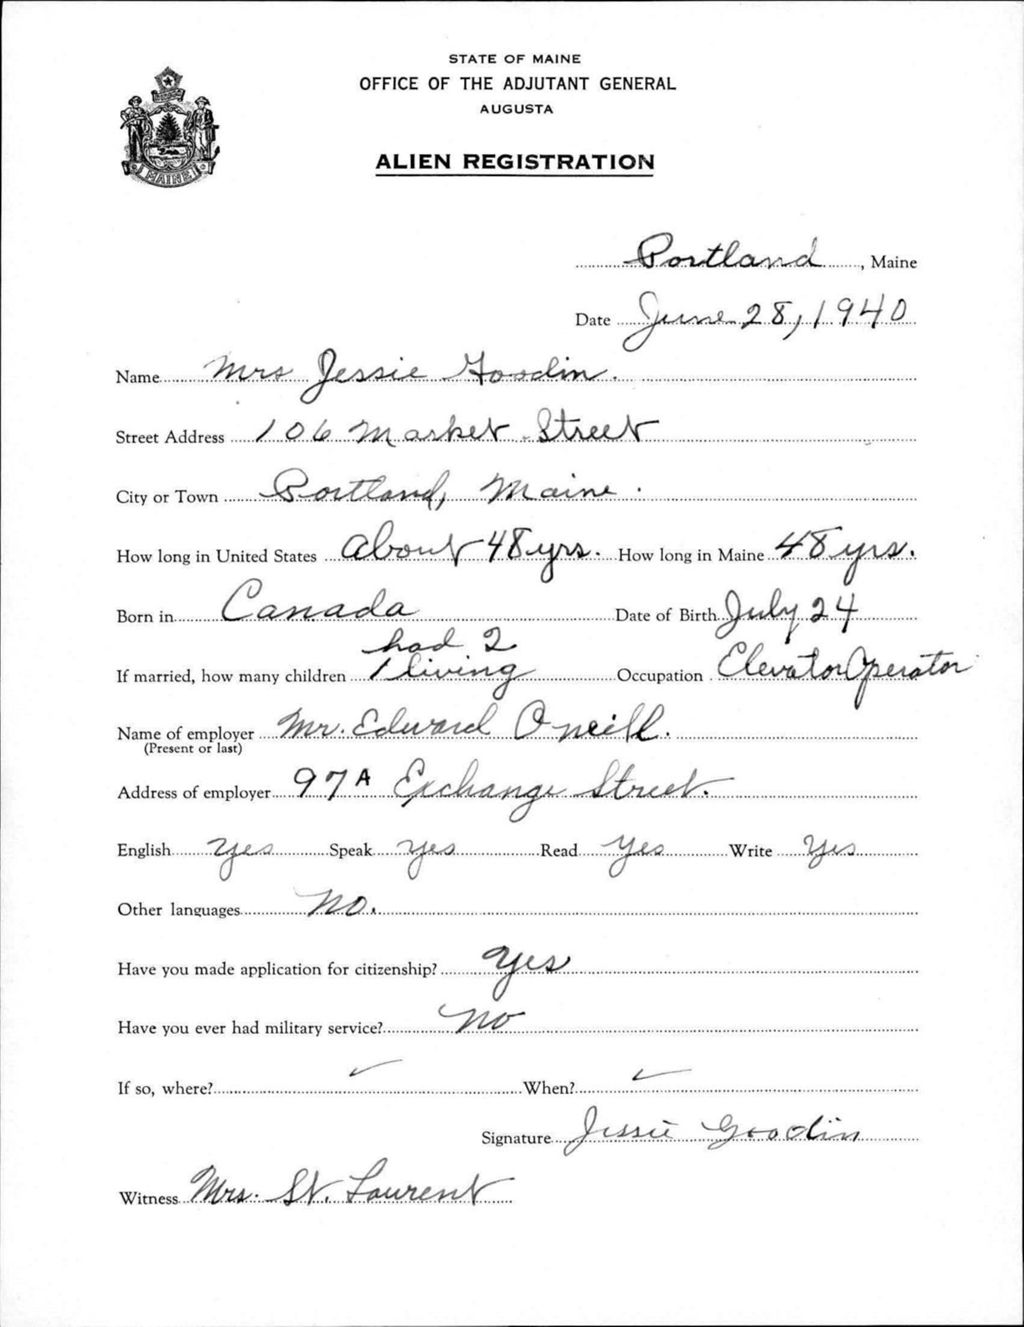 STATE OF MAINE
OFFICE OF THE ADJUTANT GENERAL
AUGUSTA
ALIEN REGISTRATION
MAINE
Portland, Maine
Date June 28, 1940
Name Mrs Jessie Goodin.
Street Address 106 Market Street
City or Town Portland, Maine.
How long in United States About 48 yrs. How long in Maine 48 yrs.
Born in Canada Date of Birth July 24
had 2
If married, how many children 1 living Occupation Elevator Operator
Name of employer Mr. Edward O'neill.
(Present or last)
Address of employer 97A Exchange Street.
English yes Speak yes Read yes Write yes
Other languages No.
Have you made application for citizenship? Yes
Have you ever had military service? No
If so, where? ✓ When? ✓
Signature Jessie Goodin
Witness Mrs. St. Laurent